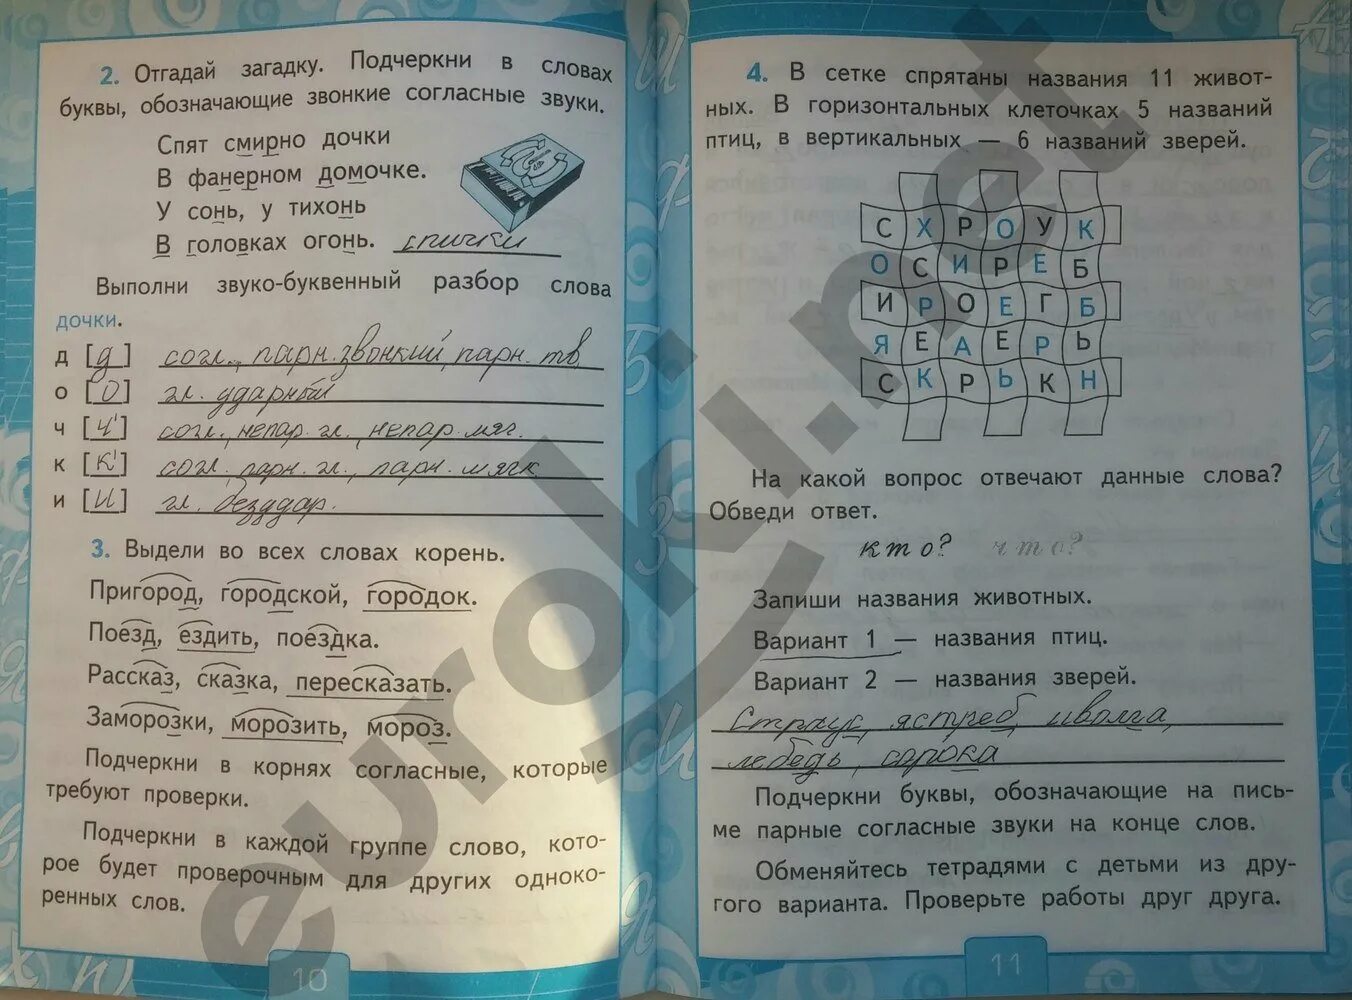 2. Отгадай загадку. Подчеркни в словах
буквы, обозначающие звонкие согласные звуки.
Спят смирно дочки
В фанерном домочке.
У сонь, у тихонь
В головках огонь. спички
Выполни звуко-буквенный разбор слова
дочки.
д [д] согл., парн. звонкий, парн. тв.
о [о] гл. ударный
ч [ч'] согл., непар. гл., непар. мяг.
к [к'] согл. парн. гл., парн. мягк
и [и] гл. безудар.
3. Выдели во всех словах корень.
Пригород, городской, городок.
Поезд, ездить, поездка.
Рассказ, сказка, пересказать.
Заморозки, морозить, мороз.
Подчеркни в корнях согласные, которые
требуют проверки.
Подчеркни в каждой группе слово, кото-
рое будет проверочным для других одноко-
ренных слов.
10
4. В сетке спрятаны названия 11 живот-
ных. В горизонтальных клеточках 5 названий
птиц, в вертикальных — 6 названий зверей.
С Х Р О У К
О С И Р Е Б
И Р О Е Г Б
Я Е А Е Р Ь
С К Р Ь К Н
На какой вопрос отвечают данные слова?
Обведи ответ.
кто? что?
Запиши названия животных.
Вариант 1 — названия птиц.
Вариант 2 — названия зверей.
Страус, ястреб, иволга,
лебедь, сорока
Подчеркни буквы, обозначающие на пись-
ме парные согласные звуки на конце слов.
Обменяйтесь тетрадями с детьми из дру-
гого варианта. Проверьте работы друг друга.
11
euroki.net